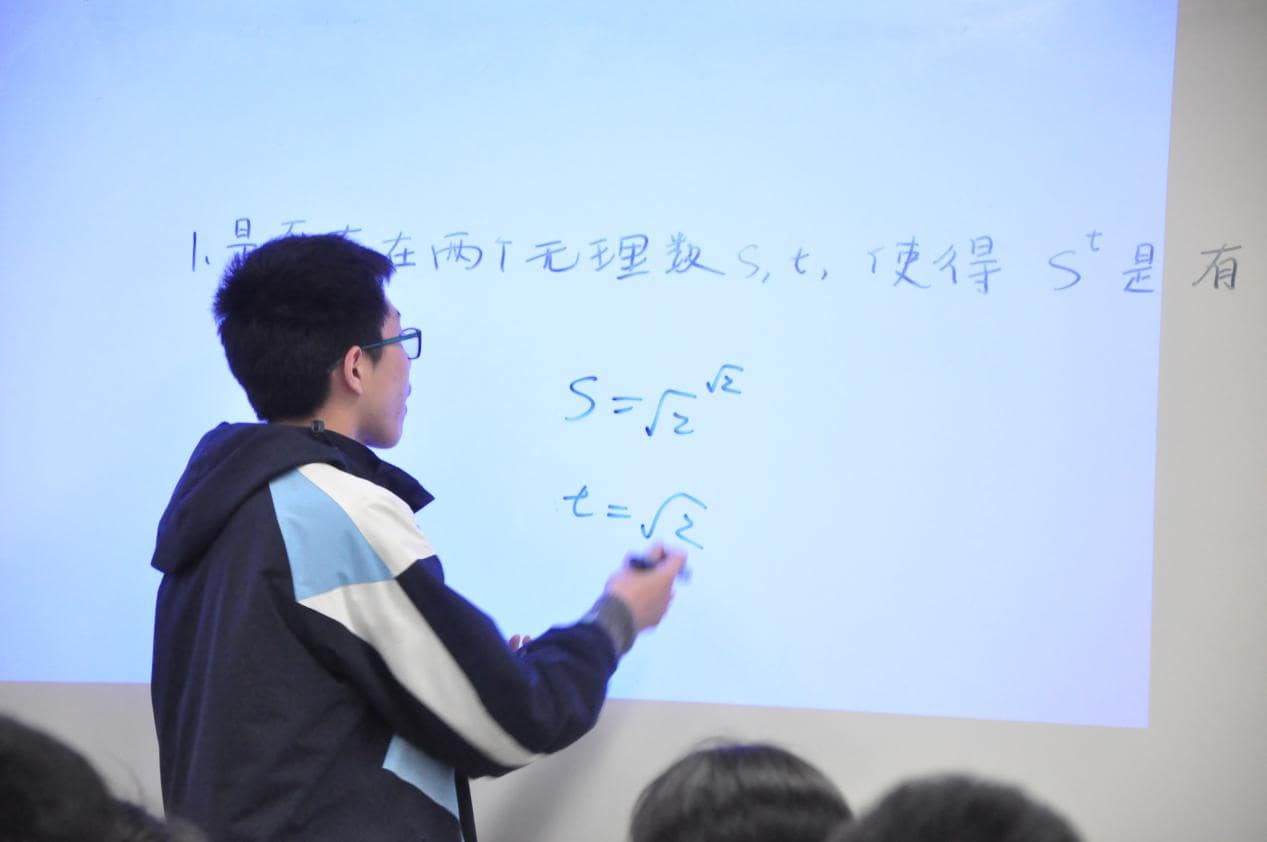 1.是否存在两个无理数 s,t, 使得 s^t 是 有
S=√2^√2
t=√2